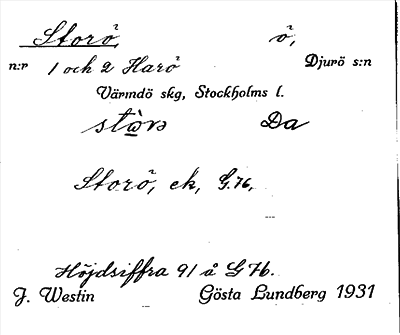 Storö ö,
n:r 1 och 2 Harö Djurö s:n
Värmdö skg, Stockholms l.
Da
Storö, ek, G.76,
Höjdsiffra 91 å G 76.
J. Westin Gösta Lundberg 1931